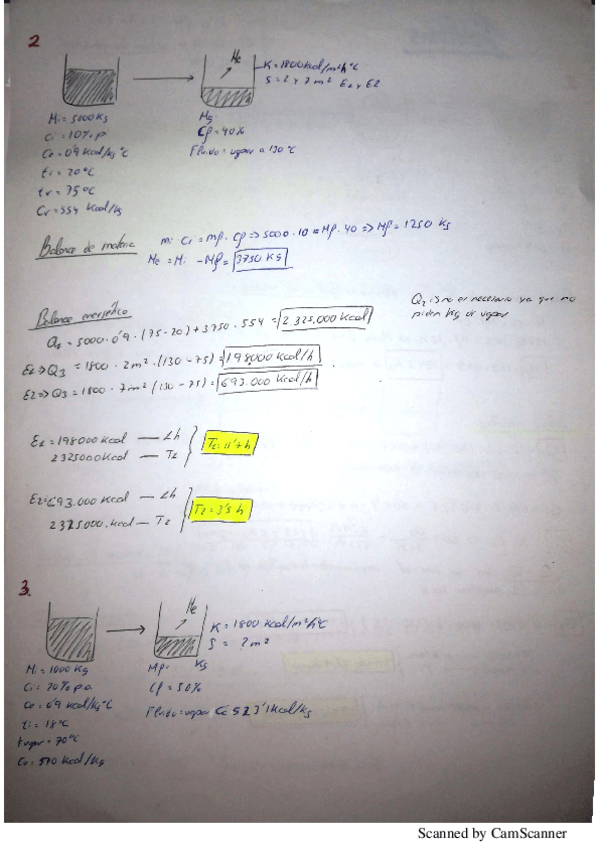 2
Me
K = 1800 Kcal/m²h°C
S = 2 y 7 m² E1 y E2
Mi = 5000 Kg
Ci = 10% pi
Ce = 0'9 Kcal/Kg°C
ti = 20°C
tv = 75°C
Cv = 554 Kcal/Kg
Mf
Cf = 40%
Fluido = vapor a 130°C
Balance de materia
Mi · Ci = Mf · Cf => 5000 · 10 = Mf · 40 => Mf = 1250 Kg
Me = Mi - Mf = 3750 Kg
Balance energético
Q1 = 5000 · 0'9 · (75 - 20) + 3750 · 554 = 2.325.000 Kcal
Q2 no es necesario ya que no
piden Kg de vapor
=> Q3 = 1800 · 2 m² · (130 - 75) = 198.000 Kcal/h
E2 => Q3 = 1800 · 7 m² (130 - 75) = 693.000 Kcal/h
= 198000 Kcal — 1h
2325000 Kcal — T1
T1 = 11'7 h
E2 = 693.000 Kcal — 1h
2325.000 Kcal — T2
= 3'5 h
3.
Me
K = 1800 Kcal/m²h°C
S = ? m²
Mi = 1000 Kg
Ci = 20% pa
Ce = 0'9 Kcal/Kg°C
ti = 18°C
tvapor = 70°C
Cv = 570 Kcal/Kg
Mf = Kg
Cf = 50%
Fluido = vapor Cc 523'1 Kcal/Kg
Scanned by CamScanner